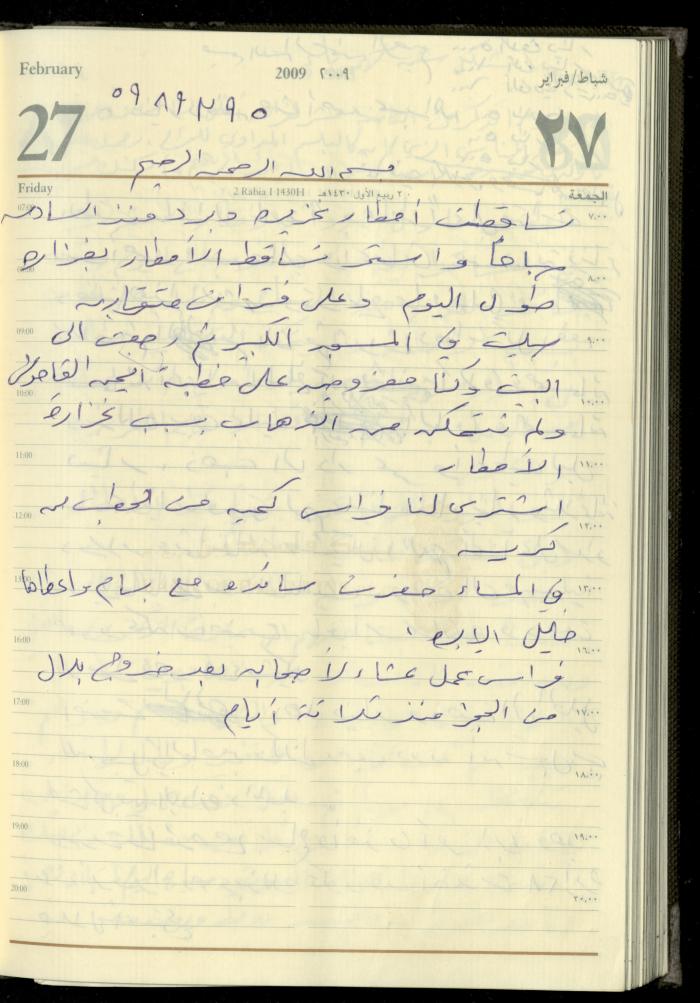 February 2009 ٢٠٠٩ شباط/فبراير
27 ٢٧
بسم الله الرحمن الرحيم
Friday 2 Rabia I 1430H ٢ ربيع الأول ١٤٣٠هـ الجمعة
07:00 ٧:٠٠
تساقطت أمطار غزيره وبرد منذ الساعه
صباحاً واستمر تساقط الأمطار بغزاره
٨:٠٠
طول اليوم وعلى فترات متقاربه
09:00 ٩:٠٠
صليت في المسجد الكبير ثم رجعت الى
البيت وكنا معزومين على خطبة
10:00 ١٠:٠٠
ولم نتمكن من الذهاب بسبب غزارة
11:00 ١١:٠٠
الأمطار
اشترى لنا فراس كميه من الحطب من
12:00 ١٢:٠٠
كريم
13:00 ١٣:٠٠
في المساء حضرت سائده مع بسام واعطاها
خليل الابره
16:00 ١٦:٠٠
فراس عمل عشاء لأصحابه بعد خروج بلال
17:00 ١٧:٠٠
من الحجز منذ ثلاثة أيام
18:00 ١٨:٠٠
19:00 ١٩:٠٠
20:00 ٢٠:٠٠